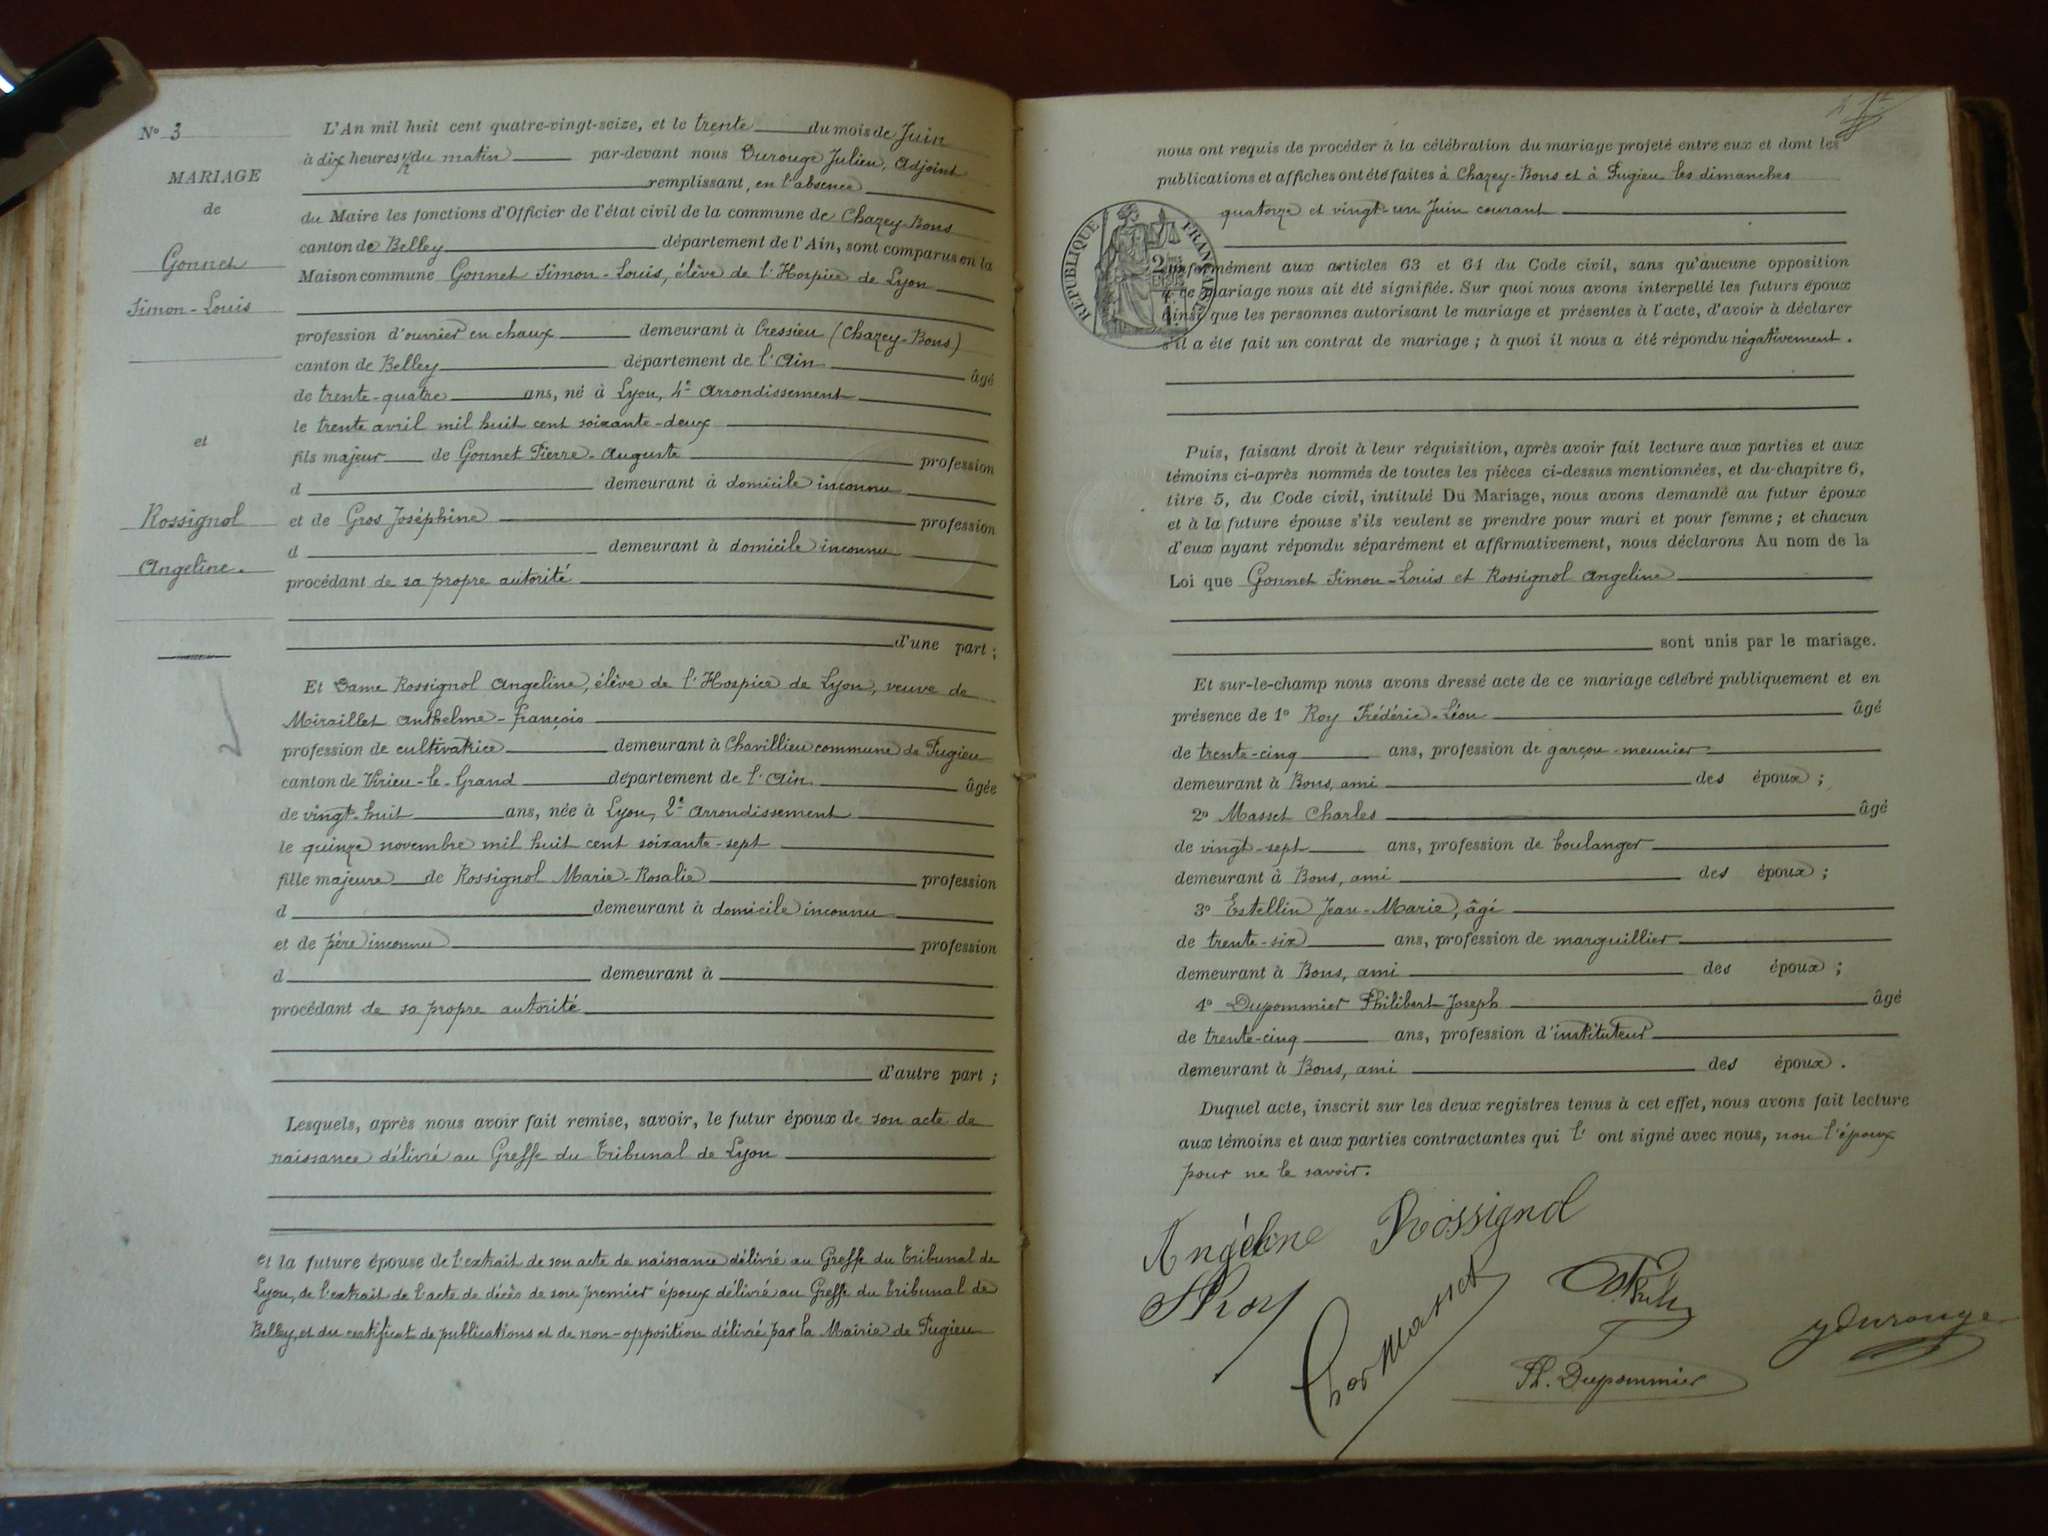 N° 3
MARIAGE
de
Gonnet
Simon-Louis
et
Rossignol
Angeline.
L'An mil huit cent quatre-vingt-seize, et le trente du mois de Juin
à dix heures 1/2 du matin par-devant nous Durouge Julien, Adjoint
remplissant, en l'absence
du Maire les fonctions d'Officier de l'état civil de la commune de Chazey-Bons
canton de Belley département de l'Ain, sont comparus en la
Maison commune Gonnet Simon-Louis, élève de l'Hospice de Lyon
profession d'ouvrier en chaux demeurant à Cressieu (Chazey-Bons)
canton de Belley département de l'Ain âgé
de trente-quatre ans, né à Lyon, 4e Arrondissement
le trente avril mil huit cent soixante-deux
fils majeur de Gonnet Pierre-Auguste profession
d demeurant à domicile inconnu
et de Gros Joséphine profession
d demeurant à domicile inconnu
procédant de sa propre autorité
d'une part ;
Et Dame Rossignol Angeline, élève de l'Hospice de Lyon, veuve de
Miraillet Anthelme-François
profession de cultivatrice demeurant à Chavillieu commune de Pugieu
canton de Virieu-le-Grand département de l'Ain âgée
de vingt-huit ans, née à Lyon, 2e Arrondissement
le quinze novembre mil huit cent soixante-sept
fille majeure de Rossignol Marie-Rosalie profession
d demeurant à domicile inconnu
et de père inconnu profession
d demeurant à
procédant de sa propre autorité
d'autre part ;
Lesquels, après nous avoir fait remise, savoir, le futur époux de son acte de
naissance délivré au Greffe du Tribunal de Lyon
et la future épouse de l'extrait de son acte de naissance délivré au Greffe du Tribunal de
Lyon, de l'extrait de l'acte de décès de son premier époux délivré au Greffe du Tribunal de
Belley, et du certificat de publications et de non-opposition délivré par la Mairie de Pugieu
nous ont requis de procéder à la célébration du mariage projeté entre eux et dont les
publications et affiches ont été faites à Chazey-Bons et à Pugieu les dimanches
quatorze et vingt-un Juin courant
RÉPUBLIQUE FRANÇAISE
conformément aux articles 63 et 64 du Code civil, sans qu'aucune opposition
à ce mariage nous ait été signifiée. Sur quoi nous avons interpellé les futurs époux
ainsi que les personnes autorisant le mariage et présentes à l'acte, d'avoir à déclarer
s'il a été fait un contrat de mariage ; à quoi il nous a été répondu négativement.
Puis, faisant droit à leur réquisition, après avoir fait lecture aux parties et aux
témoins ci-après nommés de toutes les pièces ci-dessus mentionnées, et du chapitre 6,
titre 5, du Code civil, intitulé Du Mariage, nous avons demandé au futur époux
et à la future épouse s'ils veulent se prendre pour mari et pour femme ; et chacun
d'eux ayant répondu séparément et affirmativement, nous déclarons Au nom de la
Loi que Gonnet Simon-Louis et Rossignol Angeline
sont unis par le mariage.
Et sur-le-champ nous avons dressé acte de ce mariage célébré publiquement et en
présence de 1° Roy Frédéric-Léon âgé
de trente-cinq ans, profession de garçon-meunier
demeurant à Bons, ami des époux ;
2° Masset Charles âgé
de vingt-sept ans, profession de boulanger
demeurant à Bons, ami des époux ;
3° Estellin Jean-Marie, âgé
de trente-six ans, profession de marguillier
demeurant à Bons, ami des époux ;
4° Dupommier Philibert Joseph âgé
de trente-cinq ans, profession d'instituteur
demeurant à Bons, ami des époux.
Duquel acte, inscrit sur les deux registres tenus à cet effet, nous avons fait lecture
aux témoins et aux parties contractantes qui l' ont signé avec nous, non l'époux
pour ne le savoir.
Angéline Rossignol
Roy
Masset
Ph. Dupommier
J Durouge